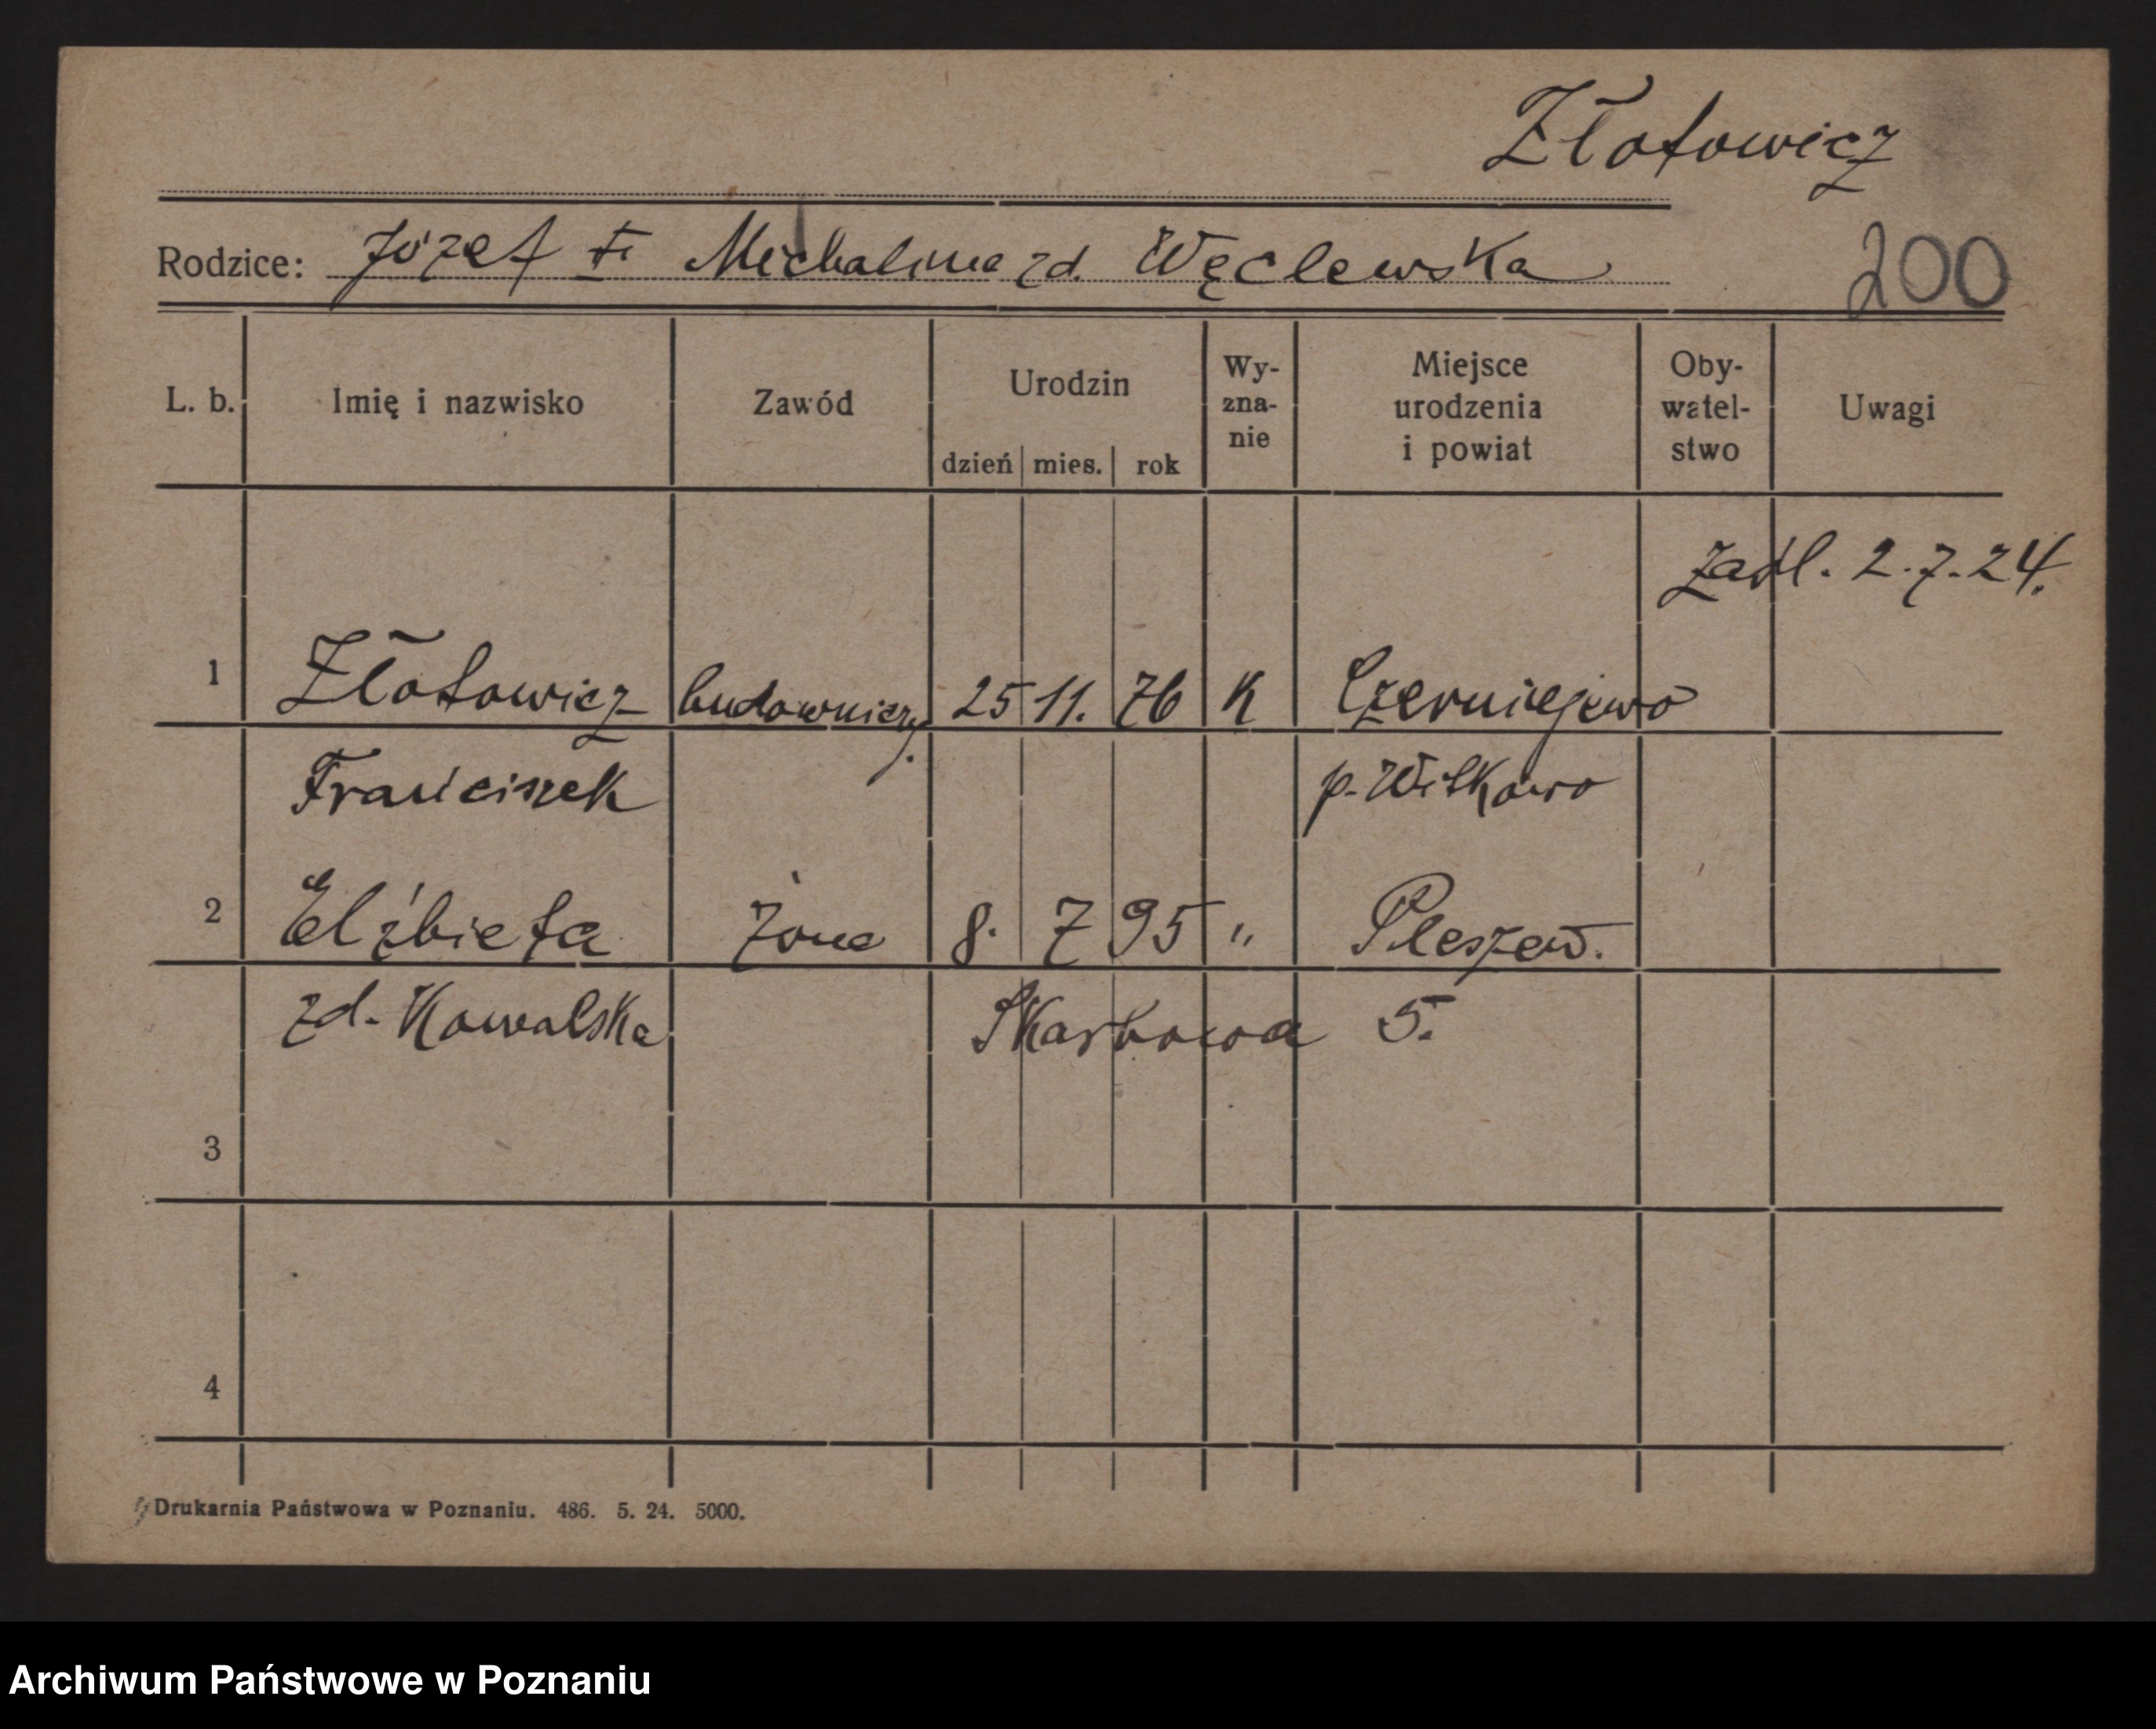 Złotowicz
Rodzice: Józef i Michalina zd. Węclewska
200
L. b. Imię i nazwisko Zawód Urodzin dzień mies. rok Wy-zna-nie Miejsce urodzenia i powiat Oby-watel-stwo Uwagi
zaśl. 2.7.24.
1 Złotowicz budowniczy. 25 11. 76 K Czerniejewo
Franciszek p. Witkowo
2 Elżbieta żona 8. 7 95 " Pleszew.
zd. Kowalska Skarbowa 5.
3
4
Drukarnia Państwowa w Poznaniu. 486. 5. 24. 5000.
Archiwum Państwowe w Poznaniu